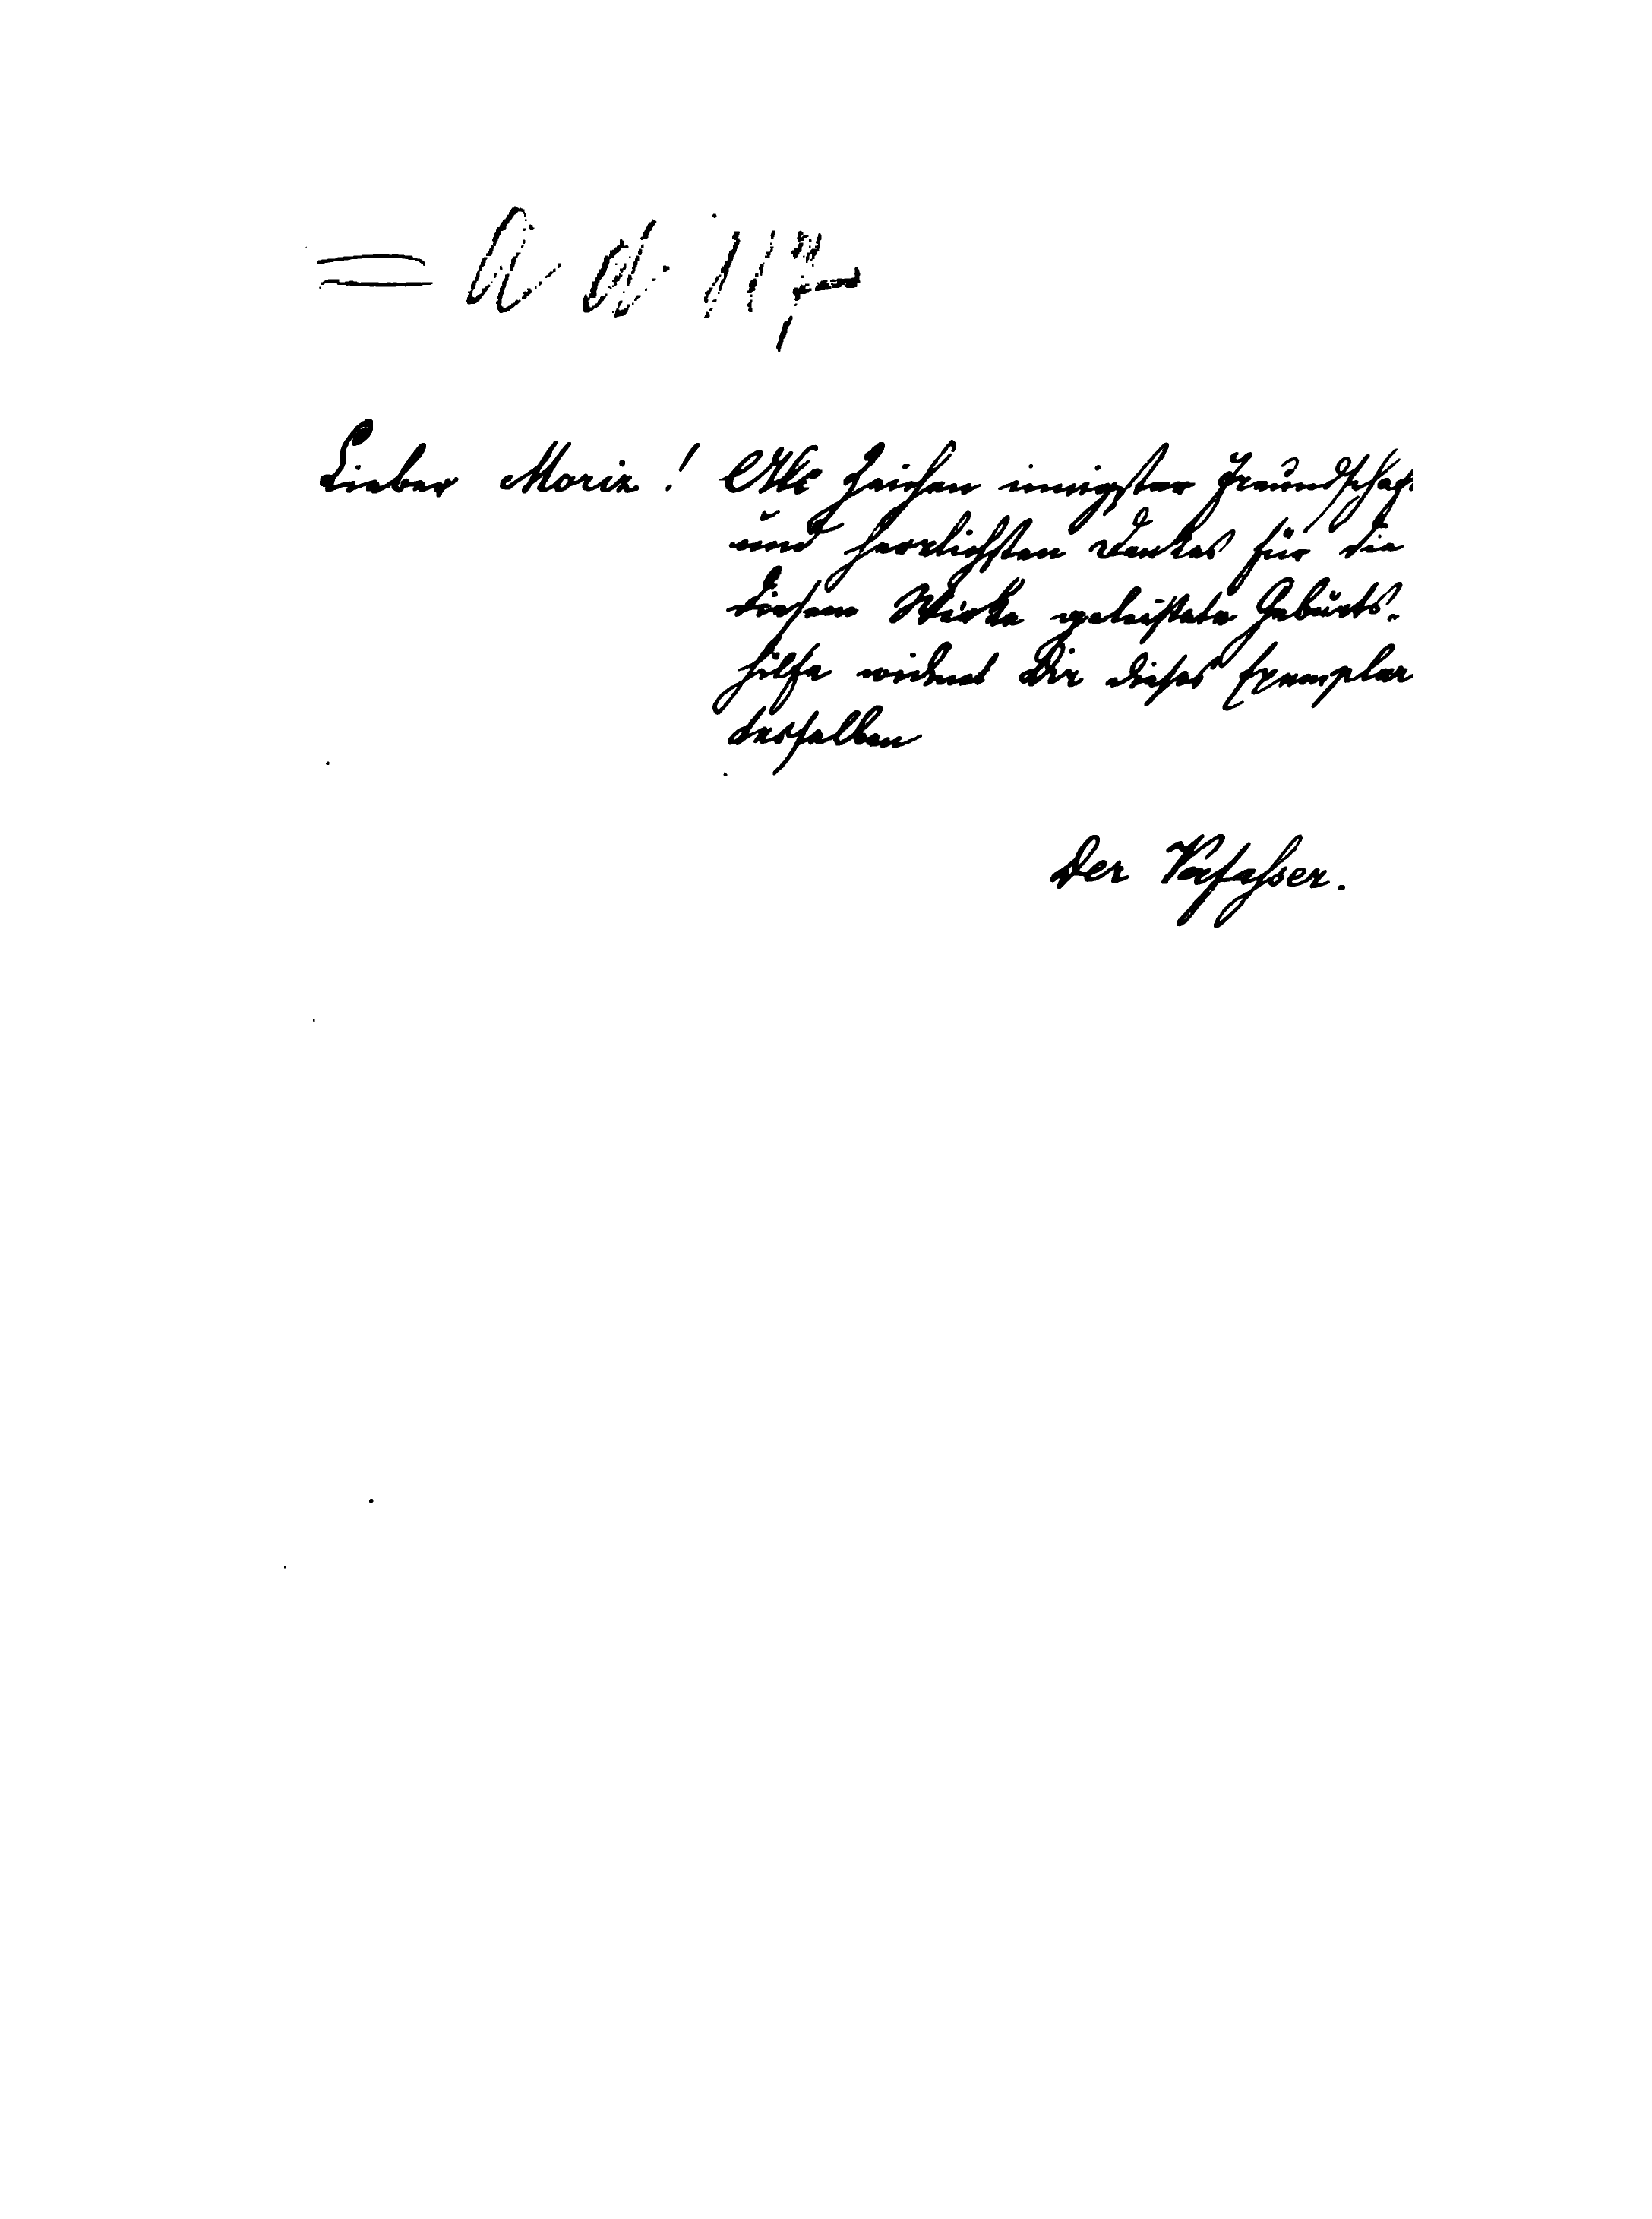 = A d 117
Lieber Moriz! Als Zeichen innigster Freundschaf
und herzlichsten Dankes für die
diesem Werke geleistete Geburts-
hilfe widmet Dir dieses Exemplar
desselben
Der Verfasser.